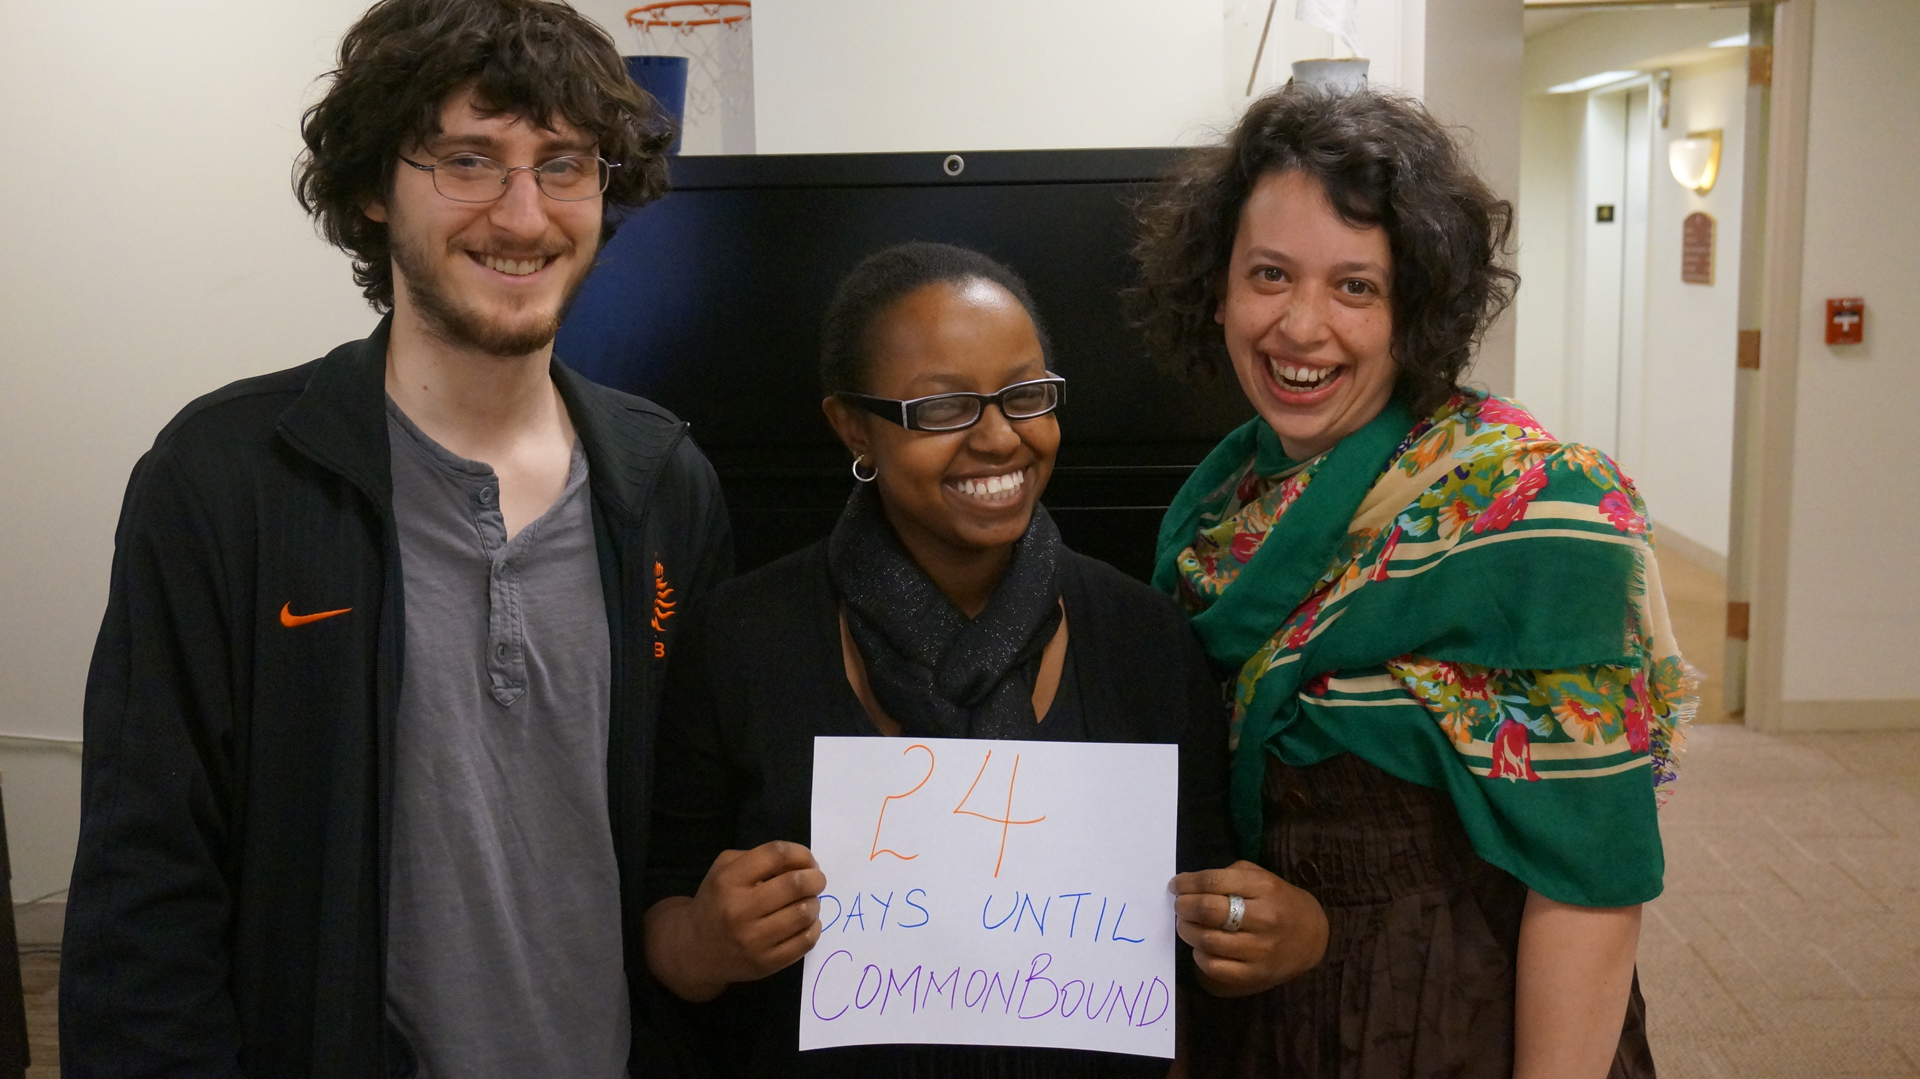 24
DAYS UNTIL
COMMONBOUND.
B